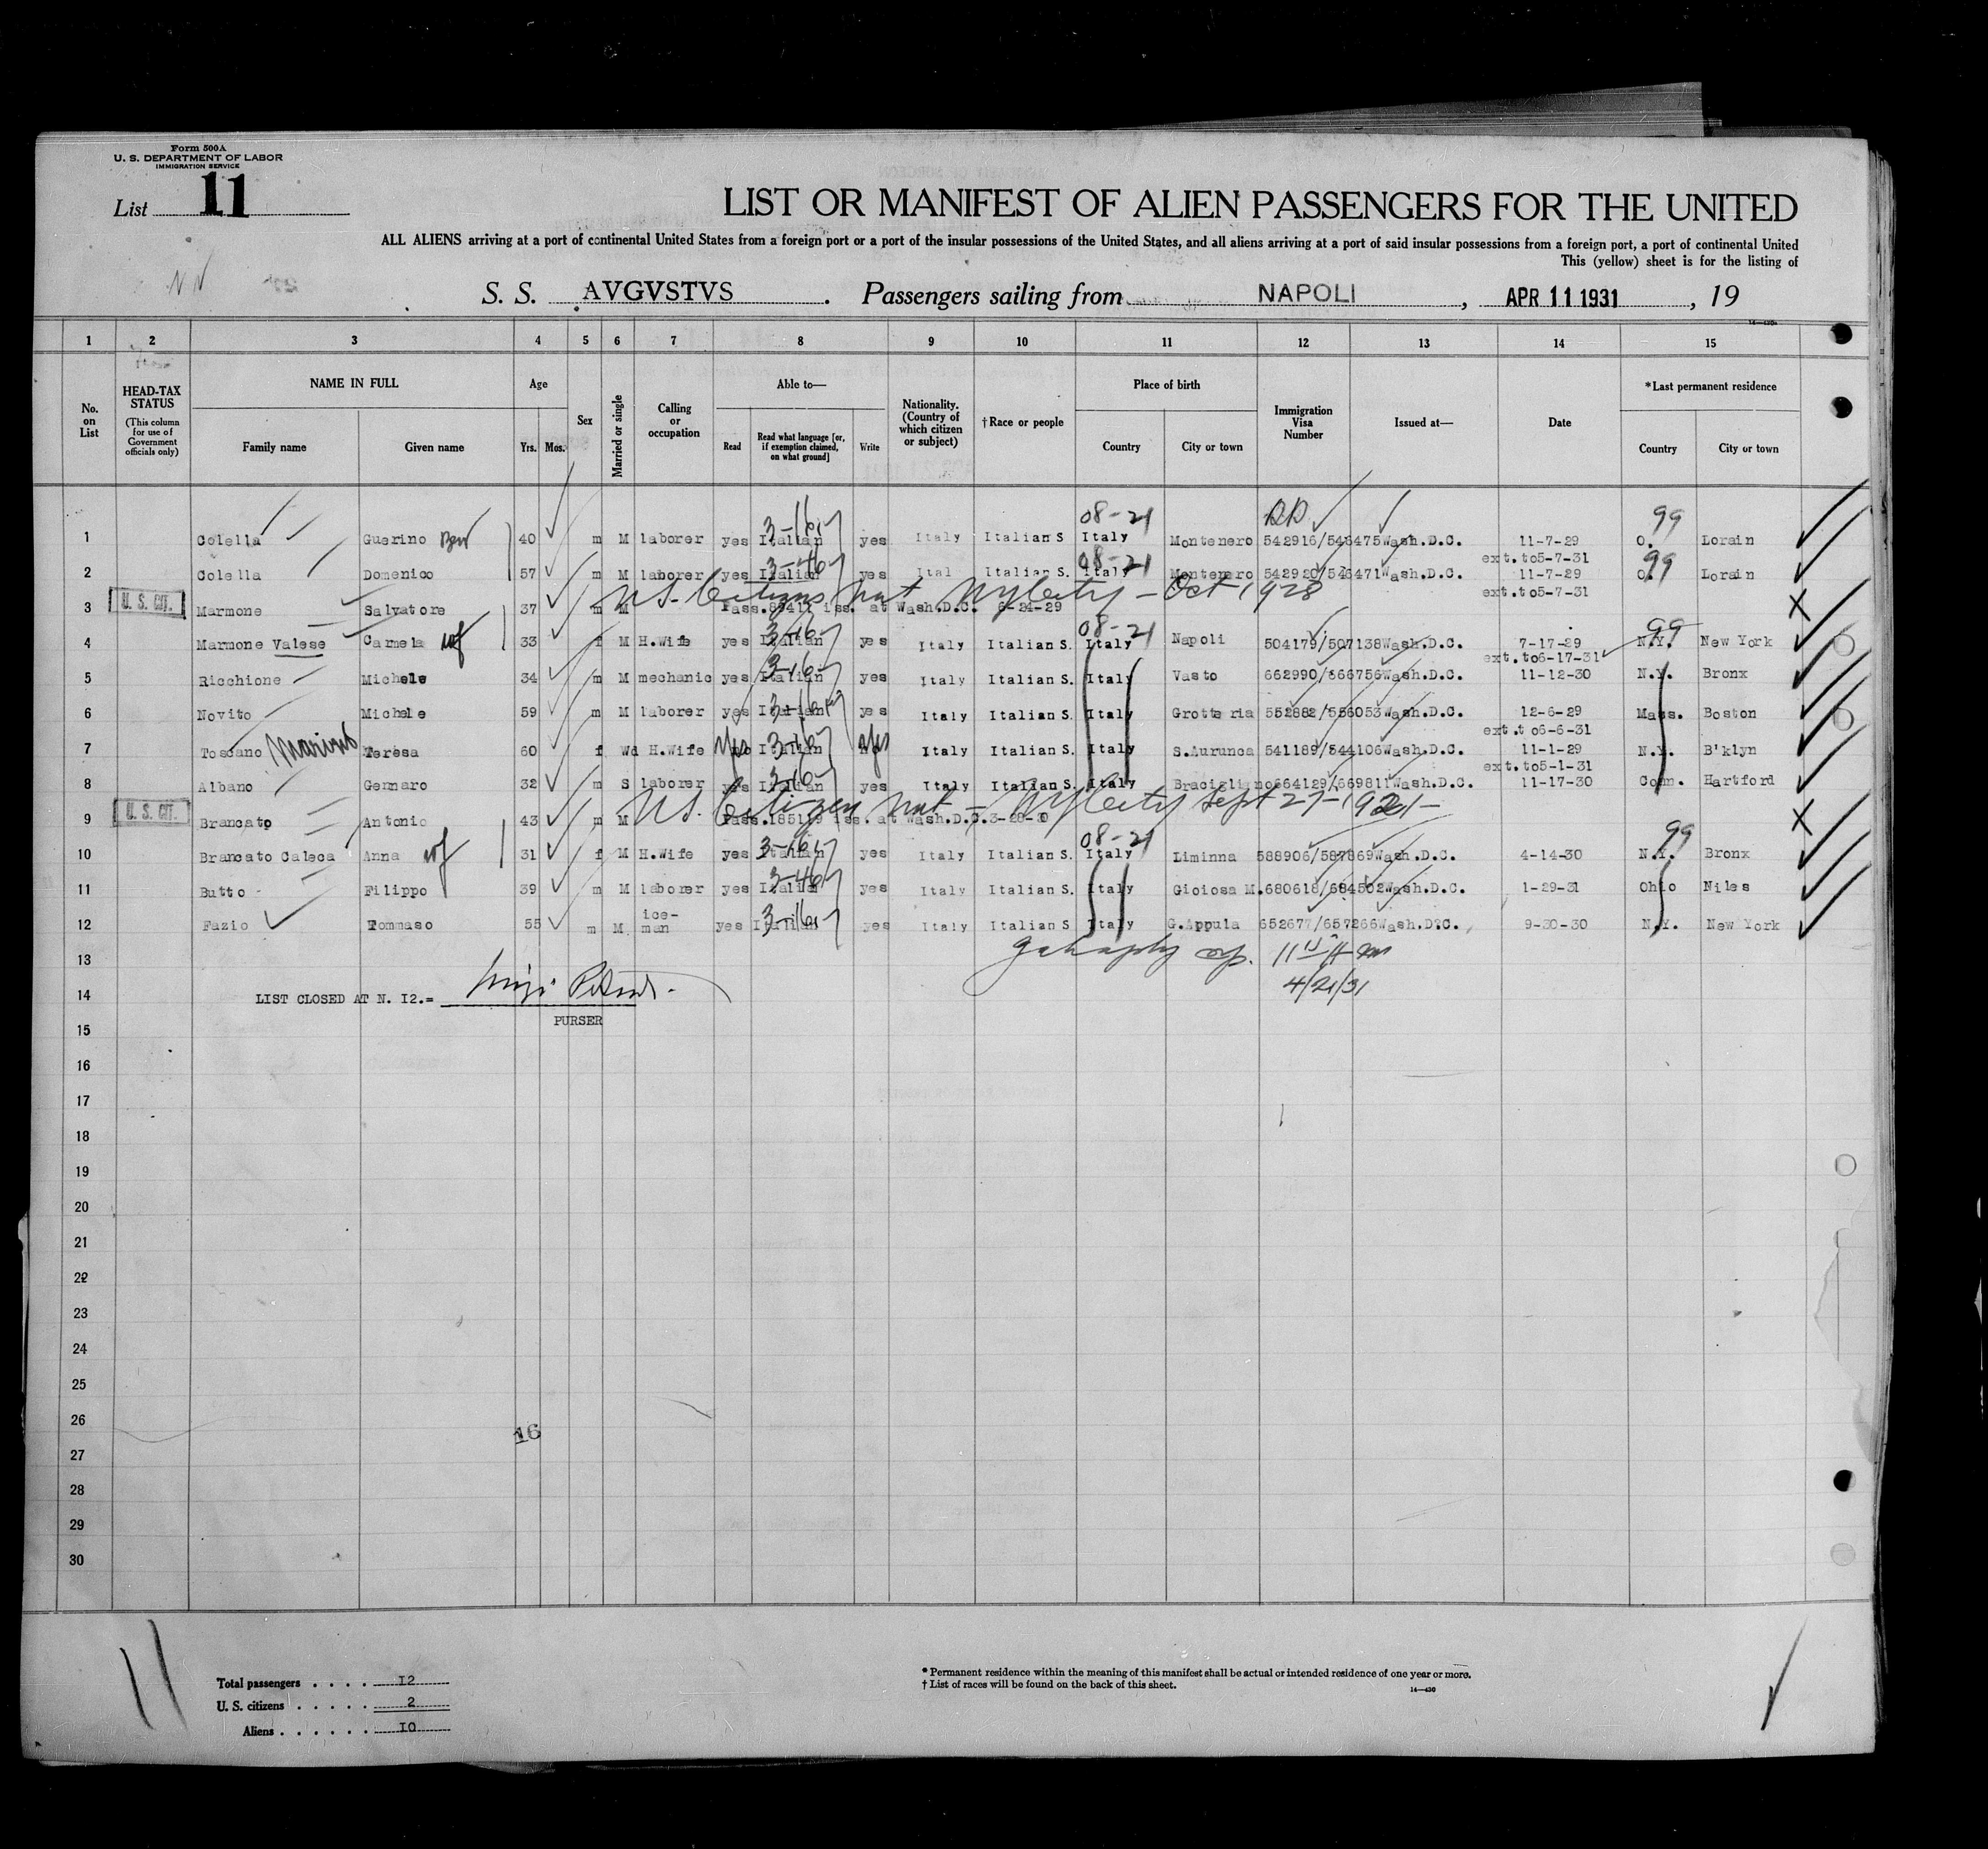 Form 500A
U. S. DEPARTMENT OF LABOR
IMMIGRATION SERVICE
List 11
LIST OR MANIFEST OF ALIEN PASSENGERS FOR THE UNITED
ALL ALIENS arriving at a port of continental United States from a foreign port or a port of the insular possessions of the United States, and all aliens arriving at a port of said insular possessions from a foreign port, a port of continental United
This (yellow) sheet is for the listing of
S. S. AVGVSTVS . Passengers sailing from NAPOLI , APR 11 1931 , 19
1 2 3 4 5 6 7 8 9 10 11 12 13 14 15
No. on List
HEAD-TAX STATUS
(This column for use of Government officials only)
NAME IN FULL
Family name Given name
Age
Yrs. Mos.
Sex
Married or single
Calling or occupation
Able to—
Read
Read what language [or, if exemption claimed, on what ground]
Write
Nationality. (Country of which citizen or subject)
†Race or people
Place of birth
Country City or town
Immigration Visa Number
Issued at—
Date
*Last permanent residence
Country City or town
08-21 99
1 Colella Guerino 40 m M laborer yes Italian yes Italy Italian S Italy Montenero 542916/546475 Wash.D.C. 11-7-29 O. Lorain
ext.to5-7-31
08-21 99
2 Colella Domenico 57 m M laborer yes Italian yes Ital Italian S. Italy Montenero 542920/546471 Wash.D.C. 11-7-29 O. Lorain
ext.to5-7-31
U. S. CIT. US. Citizens Nat NyCity - Oct 1928
3 Marmone Salvatore 37 m M Pass. iss. at Wash.D.C. 6-24-29
08-21 99
4 Marmone Valese Carmela wf 33 f M H.Wife yes Italian yes Italy Italian S. Italy Napoli 504179/507138 Wash.D.C. 7-17-29 N.Y. New York
ext.to6-17-31
5 Ricchione Michele 34 m M mechanic yes Italian yes Italy Italian S. Italy Vasto 662990/666756 Wash.D.C. 11-12-30 N.Y. Bronx
6 Novito Michele 59 m M laborer yes Italian yes Italy Italian S. Italy Grotteria 552882/556053 Wash.D.C. 12-6-29 Mass. Boston
ext.to6-6-31
7 Toscano Teresa 60 f Wd H.Wife yes Italian yes Italy Italian S. Italy S.Aurunca 541189/544106 Wash.D.C. 11-1-29 N.Y. B'klyn
ext.to5-1-31
8 Albano Gennaro 32 m S laborer yes Italian yes Italy Italian S. Italy Bracigliano 664129/669811 Wash.D.C. 11-17-30 Conn. Hartford
U. S. CIT. US. Citizen Nat - NyCity Sept 27-1921-
9 Brancato Antonio 43 m M Pass. iss. at Wash.D.C. 3-28-30
08-21 99
10 Brancato Caleca Anna wf 31 f M H.Wife yes Italian yes Italy Italian S. Italy Liminna 588906/587869 Wash.D.C. 4-14-30 N.Y. Bronx
11 Butto Filippo 39 m M laborer yes Italian yes Italy Italian S. Italy Gioiosa M. 680618/684502 Wash.D.C. 1-29-31 Ohio Niles
12 Fazio Tommaso 55 m M ice-man yes Italian yes Italy Italian S. Italy G.Appula 652677/657266 Wash.D.C. 9-30-30 N.Y. New York
13
4/21/31
14 LIST CLOSED AT N. I2.=
PURSER
15
16
17
18
19
20
21
22
23
24
25
26
16
27
28
29
30
Total passengers . . . . I2
U. S. citizens . . . . . 2
Aliens . . . . . . I0
* Permanent residence within the meaning of this manifest shall be actual or intended residence of one year or more.
† List of races will be found on the back of this sheet.
14—430